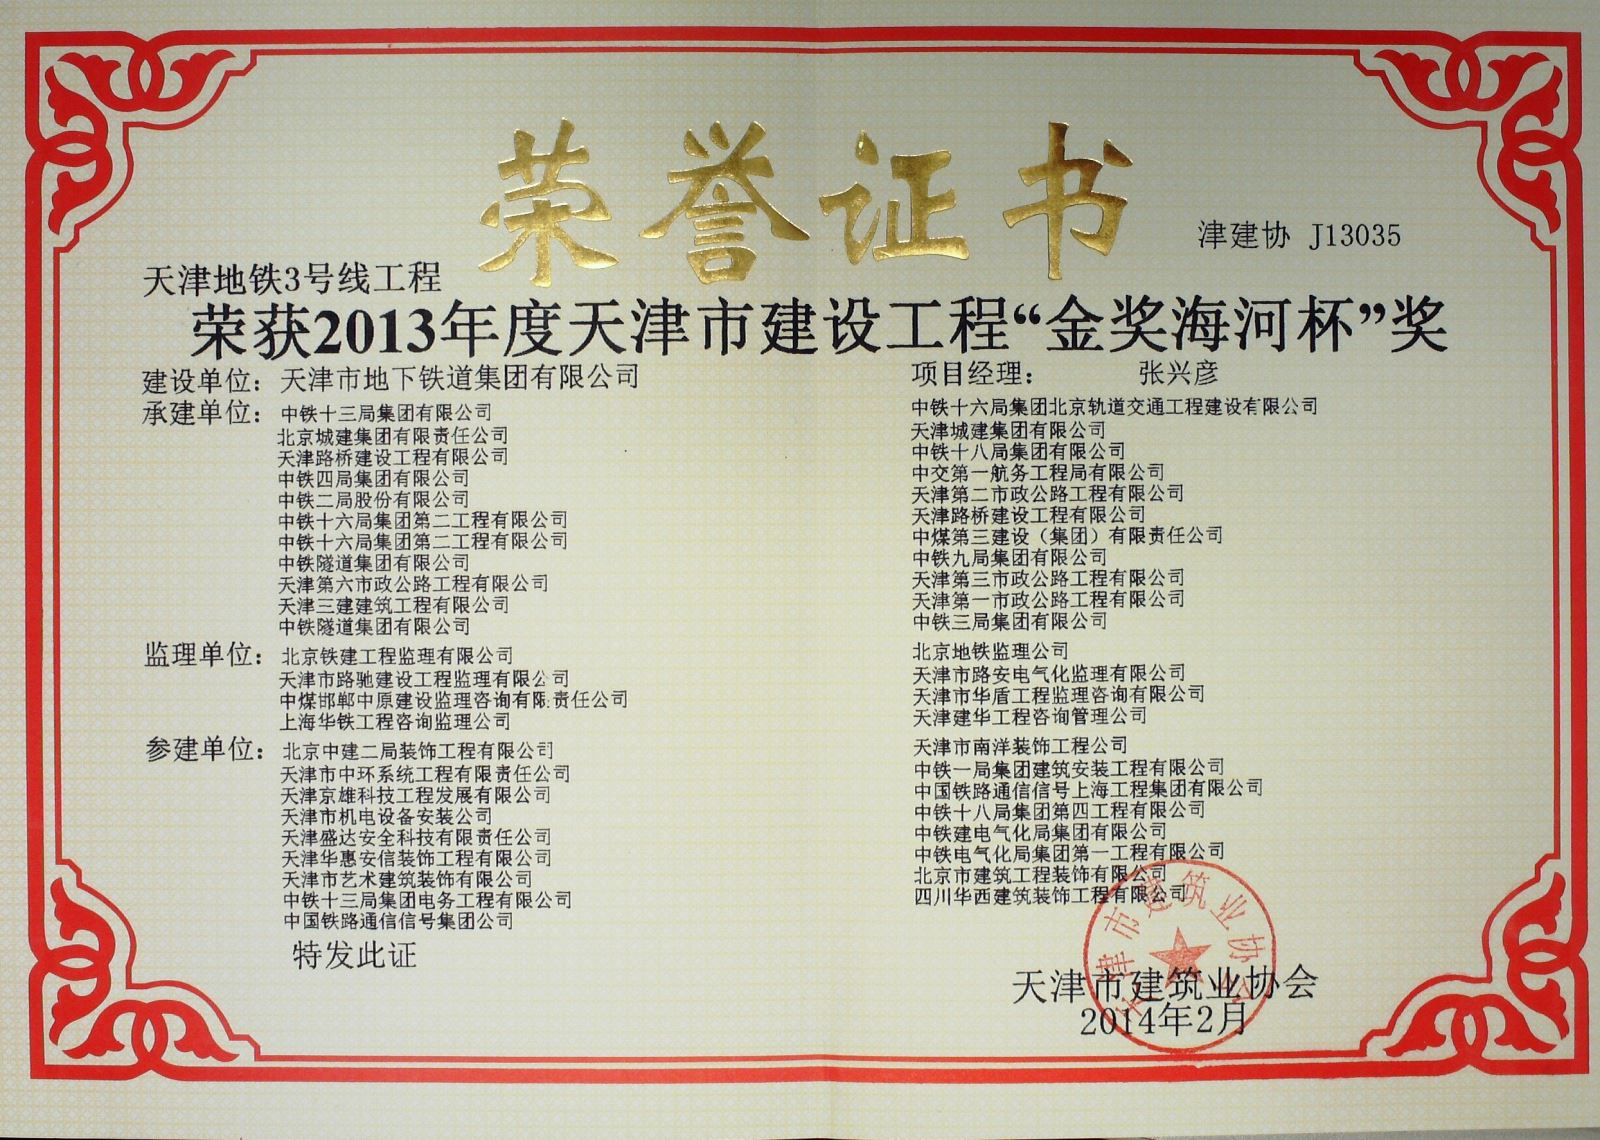 荣誉证书
津建协 J13035
天津地铁3号线工程
荣获2013年度天津市建设工程“金奖海河杯”奖
建设单位：天津市地下铁道集团有限公司
项目经理： 张兴彦
承建单位：中铁十三局集团有限公司
北京城建集团有限责任公司
天津路桥建设工程有限公司
中铁四局集团有限公司
中铁二局股份有限公司
中铁十六局集团第二工程有限公司
中铁十六局集团第二工程有限公司
中铁隧道集团有限公司
天津第六市政公路工程有限公司
天津三建建筑工程有限公司
中铁隧道集团有限公司
中铁十六局集团北京轨道交通工程建设有限公司
天津城建集团有限公司
中铁十八局集团有限公司
中交第一航务工程局有限公司
天津第二市政公路工程有限公司
天津路桥建设工程有限公司
中煤第三建设（集团）有限责任公司
中铁九局集团有限公司
天津第三市政公路工程有限公司
天津第一市政公路工程有限公司
中铁三局集团有限公司
监理单位：北京铁建工程监理有限公司
天津市路驰建设工程监理有限公司
中煤邯郸中原建设监理咨询有限责任公司
上海华铁工程咨询监理公司
北京地铁监理公司
天津市路安电气化监理有限公司
天津市华盾工程监理咨询有限公司
天津建华工程咨询管理公司
参建单位：北京中建二局装饰工程有限公司
天津市中环系统工程有限责任公司
天津京雄科技工程发展有限公司
天津市机电设备安装公司
天津盛达安全科技有限责任公司
天津华惠安信装饰工程有限公司
天津市艺术建筑装饰有限公司
中铁十三局集团电务工程有限公司
中国铁路通信信号集团公司
天津市南洋装饰工程公司
中铁一局集团建筑安装工程有限公司
中国铁路通信信号上海工程集团有限公司
中铁十八局集团第四工程有限公司
中铁建电气化局集团有限公司
中铁电气化局集团第一工程有限公司
北京市建筑工程装饰有限公司
四川华西建筑装饰工程有限公司
特发此证
天津市建筑业协会
天津市建筑业协会
2014年2月